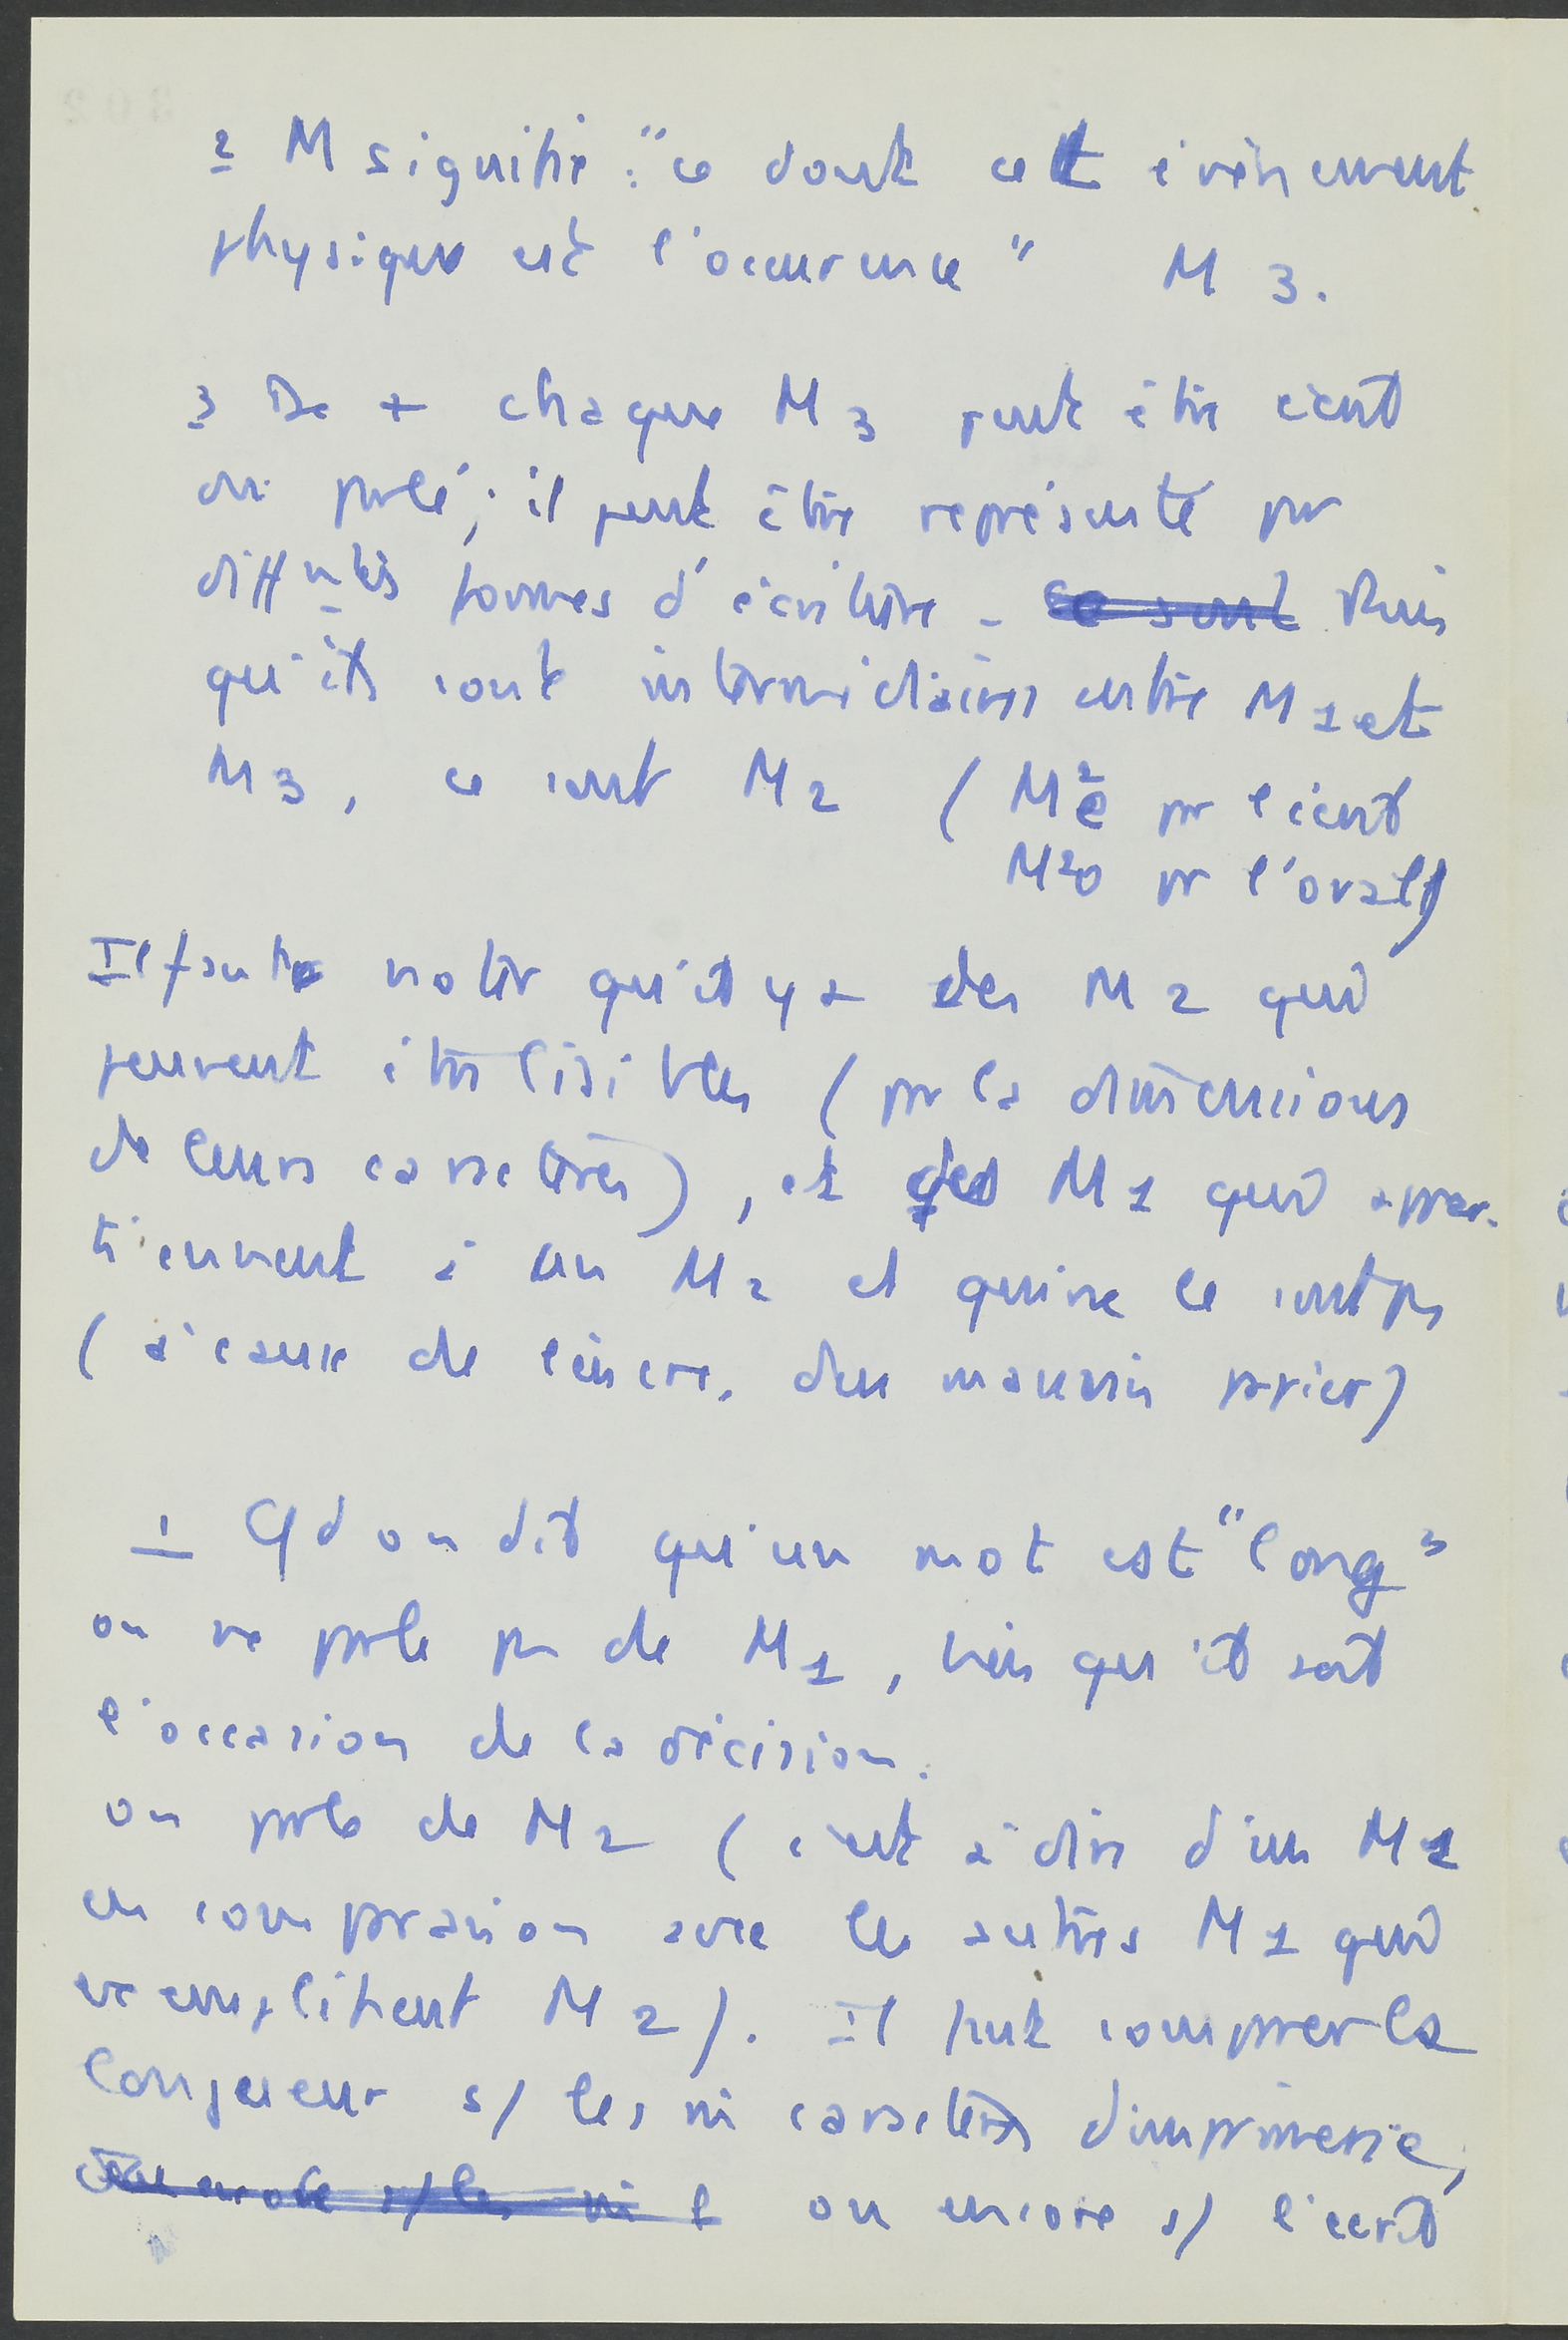 2 M signifie : "ce dont cet évènement
physique est l'occurence" M 3.
3 De + chaque M 3 peut être écrit
ou parlé ; il peut être représenté par
différentes formes d'écriture - ce sont Puis
qu'ils sont intermédiaires entre M 1 et
M 3, ce sont M 2 ( M2e pr l'écrit
M2o pr l'oral)
Il faut noter qu'il y a des M 2 qui
peuvent être lisibles (par la dimensions
de leurs caractères), et des M 1 qui appar-
tiennent à un M 2 et qui ne le sont pas
(à cause de l'encre, du mauvais papier)
1 Qd on dit qu'un mot est "long"
on ne parle pas de M 1, bien qu'il soit
l'occasion de la décision.
on parle de M 2 (c'est à dire d'un M 1
en comparaison avec les autres M 1 qui
exemplifient M 2). Il faut comparer la
longueur s/ les m̂ caractères d'imprimerie,
encore s/ les m̂ ou encore s/ l'écrit